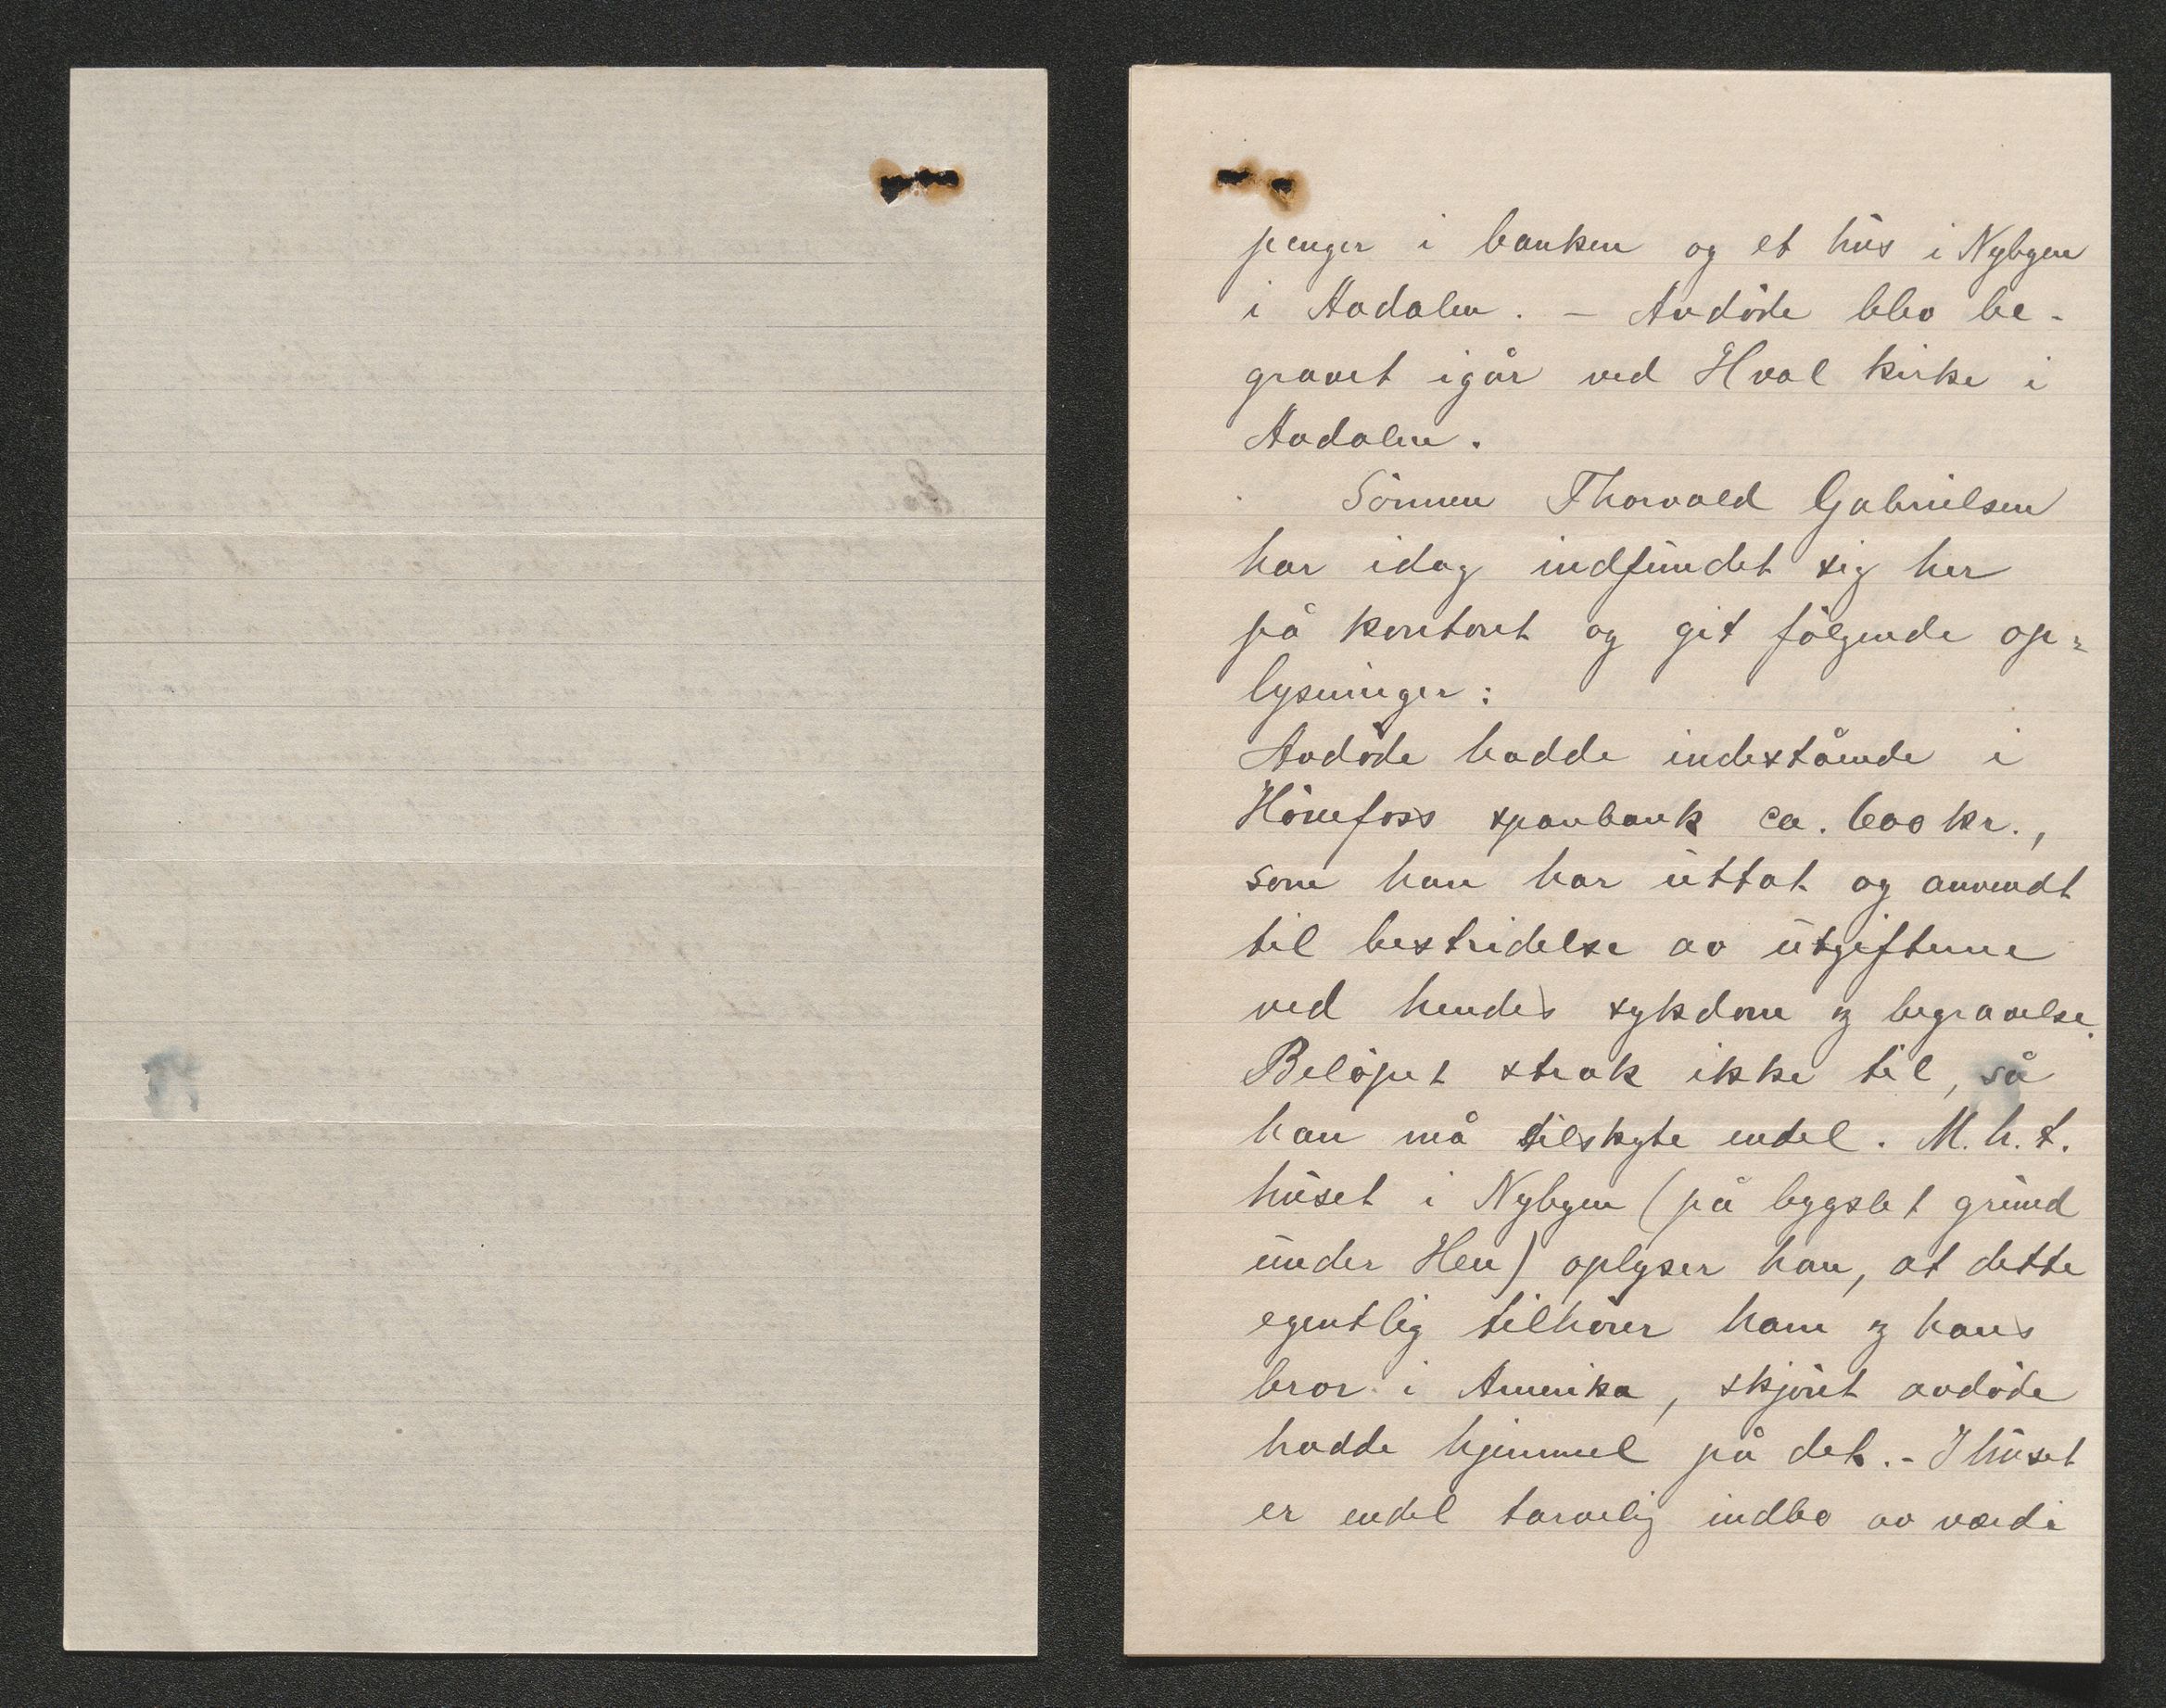 penger i banken og et hus i Nybyen
i Aadalen. – Avdöde blev be-
gravet igår ved Hval kirke i
Aadalen.
Sönnen Thorvald Gabrielsen
har idag indfundet sig her
på kontoret og git fölgende op=
lysninger:
Avdöde hadde indestående i
Hönefoss sparbank ca. 600 kr.,
som han har uttat og anvendt
til bestridelse av utgifterne
ved hendes sykdom og begravelse.
Belöpet strak ikke til, så
han må tilskyte endel. M.h.t.
huset i Nybyen (på bygslet grund
under Hen) oplyser han, at dette
egentlig tilhörer ham og hans
bror i Amerika, skjönt avdöde
hadde hjemmel på det. - I huset
er endel tarvelig indbo av værdi